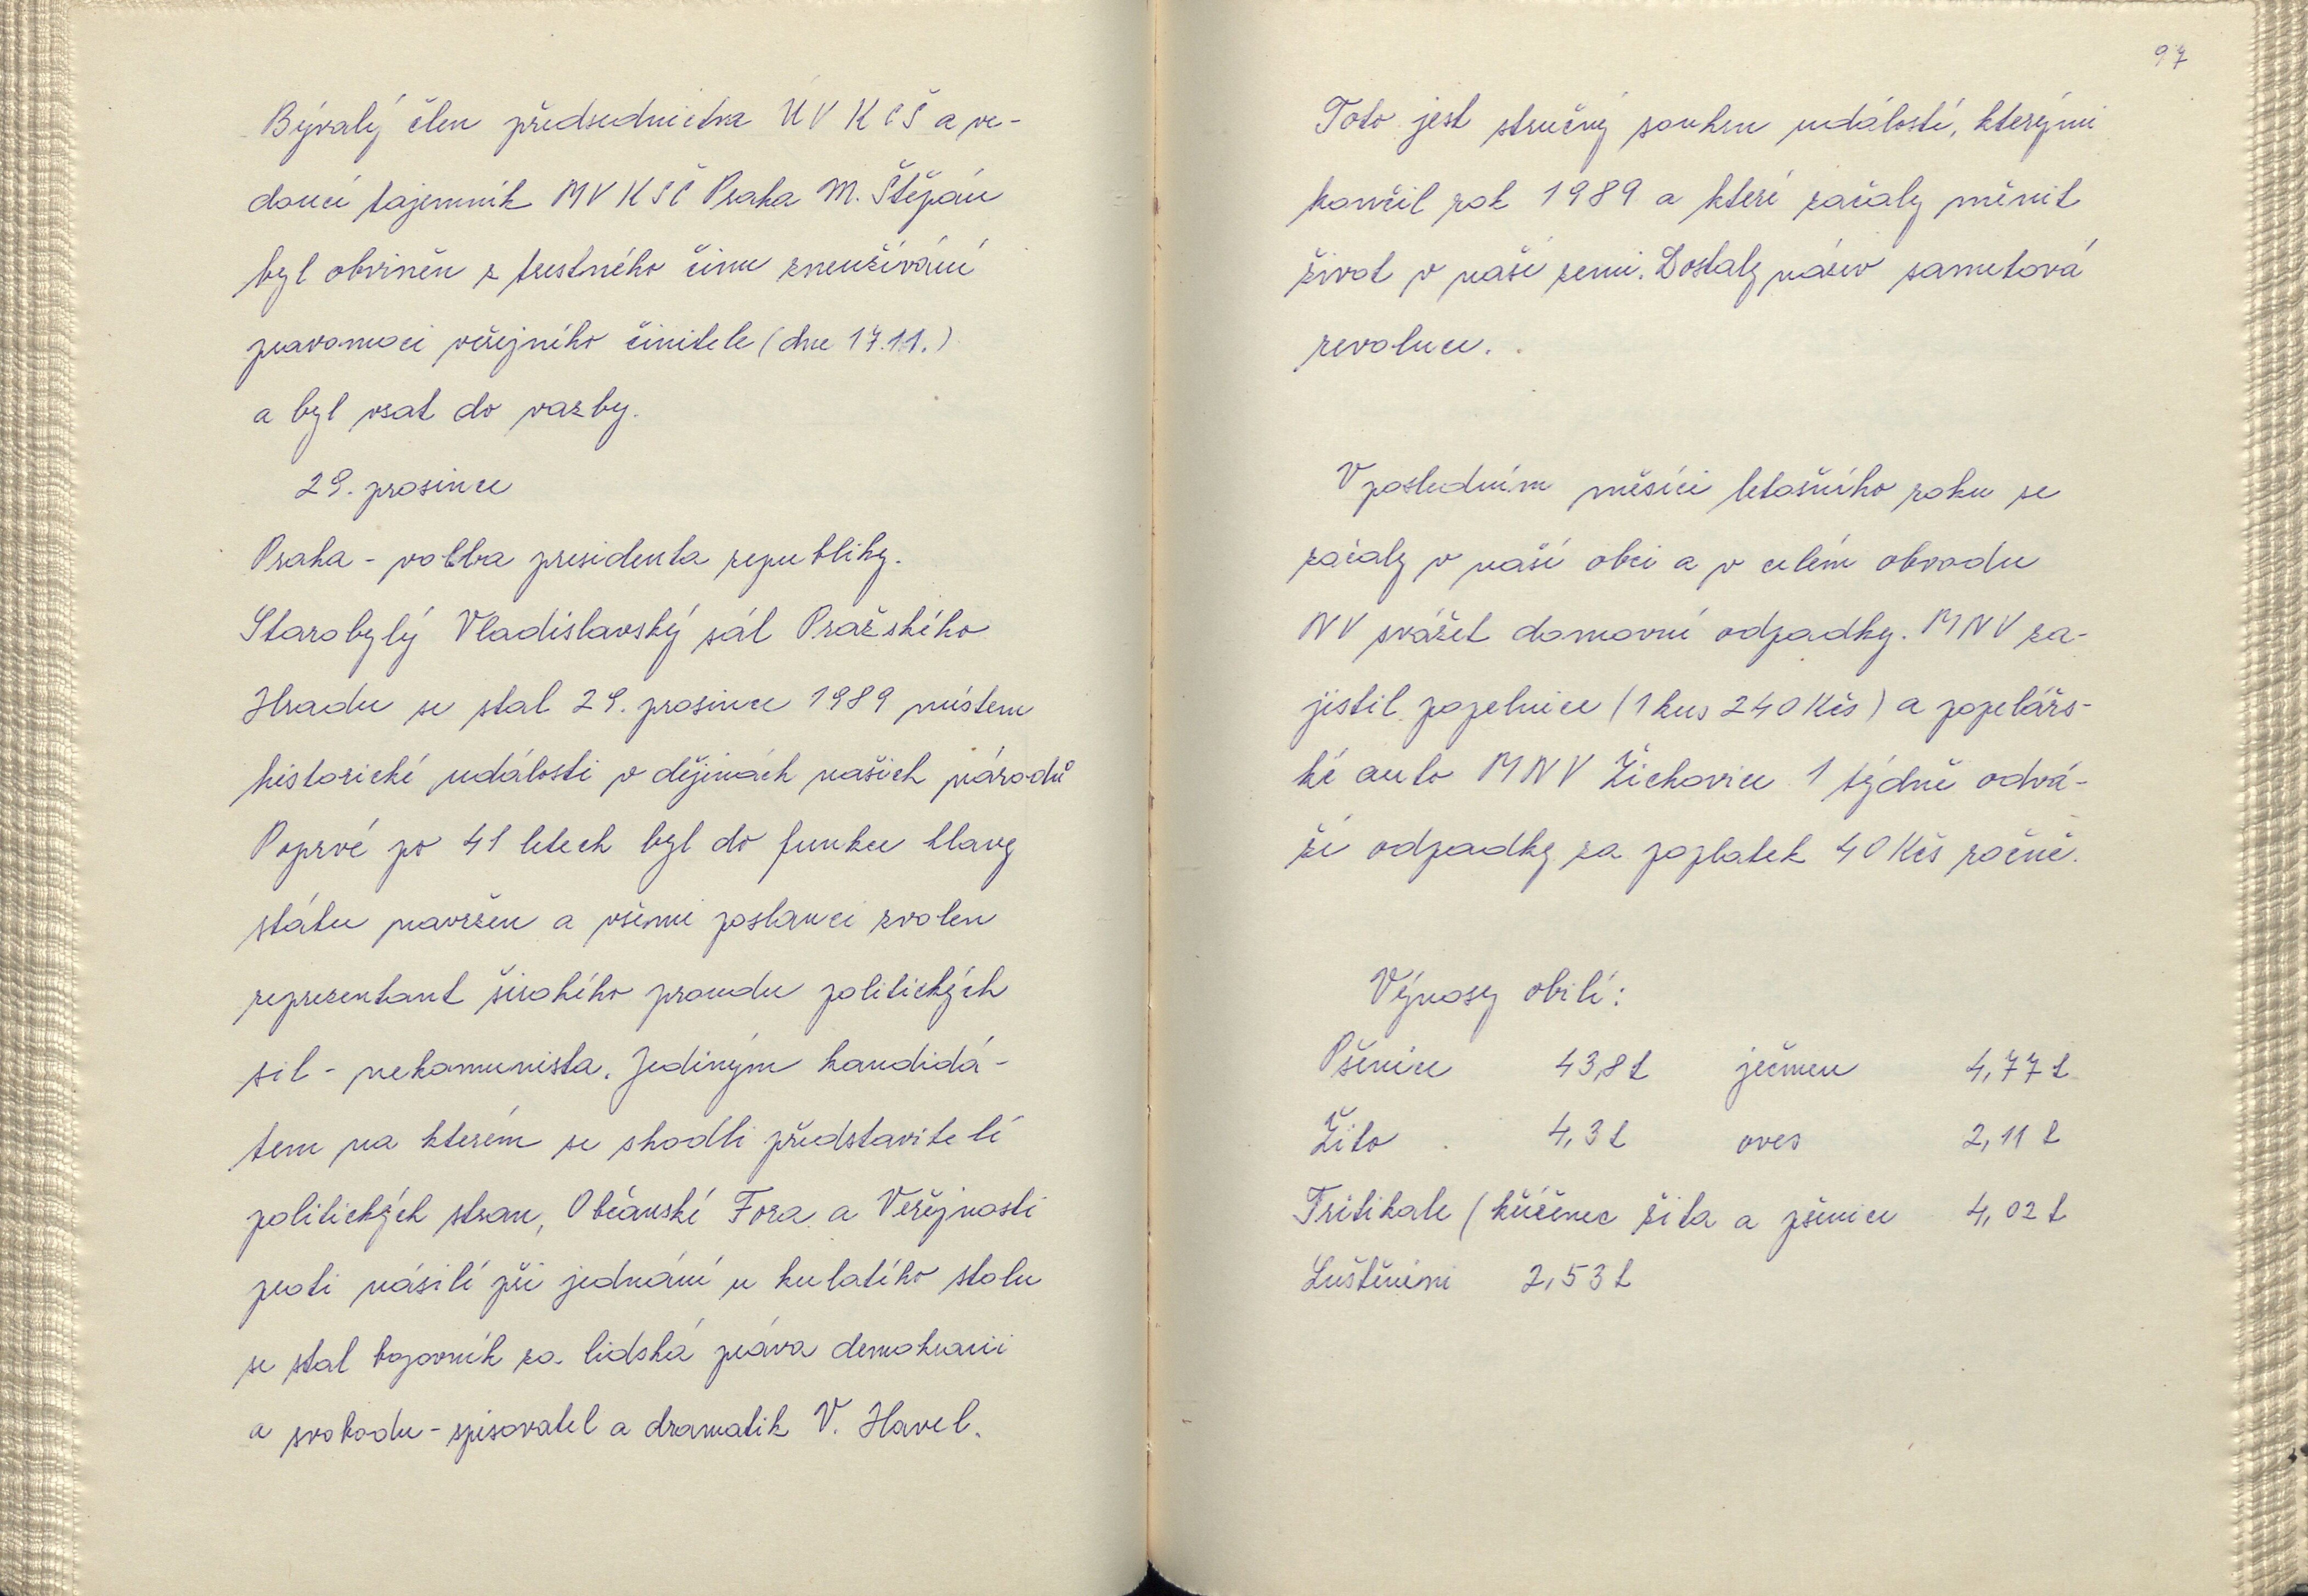 Bývalý člen předsednictva ÚV KSČ a ve-
doucí tajemník MV KSČ Praha M. Štěpán
byl obviněn z trestného činu zneužívání
pravomoci veřejného činitele (dne 17.11.)
a byl vzat do vazby.
29. prosince
Praha - volba presidenta republiky.
Starobylý Vladislavský sál Pražského
Hradu se stal 29. prosince 1989 místem
historické události v dějinách našich národů
Poprvé po 41 letech byl do funkce hlavy
státu navržen a všemi poslanci zvolen
reprezentant širokého proudu politických
sil - nekomunista. Jediným kandidá-
tem na kterém se shodli představitelé
politických stran, Občanské Fora a Veřejnosti
proti násilí při jednání u kulatého stolu
se stal bojovník za lidská práva demokracii
a svobodu - spisovatel a dramatik V. Havel.
97
Toto jest stručný souhrn událostí, kterými
končil rok 1989 a které začaly měnit
život v naší zemi. Dostaly název sametová
revoluce.
V posledním měsíci letošního roku se
začaly v naší obci a v celém obvodu
NV svážet domovní odpadky. MNV za-
jistil popelnice (1 kus 240 Kčs) a popelářs-
ké auto MNV Žichovice 1 týdně odvá-
ží odpadky za poplatek 40 Kčs ročně.
Výnosy obilí:
Pšenice 43,8 t ječmen 4,77 t
Žito 4,3 t oves 2,11 t
Tritikale (kříženec žita a pšenice 4,02 t
Luštěnini 2,53 t